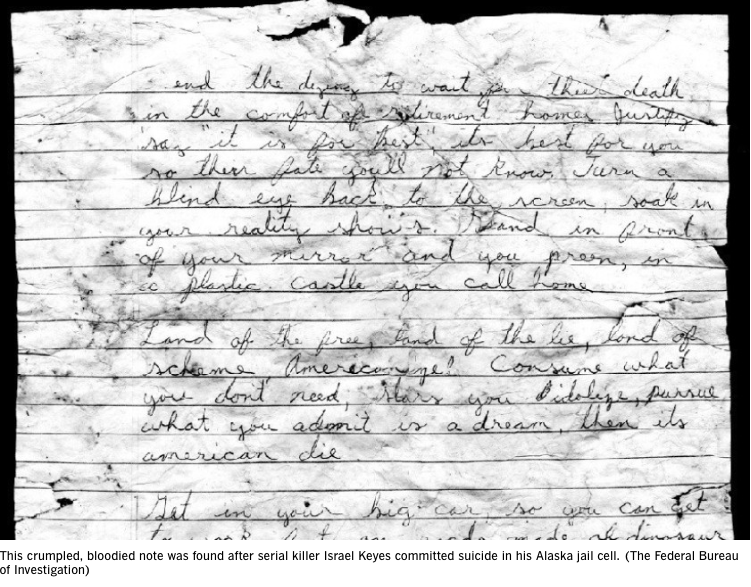 send the dying to wait for their death
in the comfort of retirement homes Justify
say "it is for best", its best for you
so their fate you'll not know. Turn a
blind eye back to the screen, soak in
your reality shows. Stand in front
of your mirror and you preen, in
a plastic castle you call home
Land of the free, land of the lie, land of
scheme Americanize! Consume what
you don't need, stars you idolize, pursue
what you admit is a dream, then its
american die
Get in your big car, so you can get
to work fast, on roads made of dinosaur
This crumpled, bloodied note was found after serial killer Israel Keyes committed suicide in his Alaska jail cell. (The Federal Bureau
of Investigation)